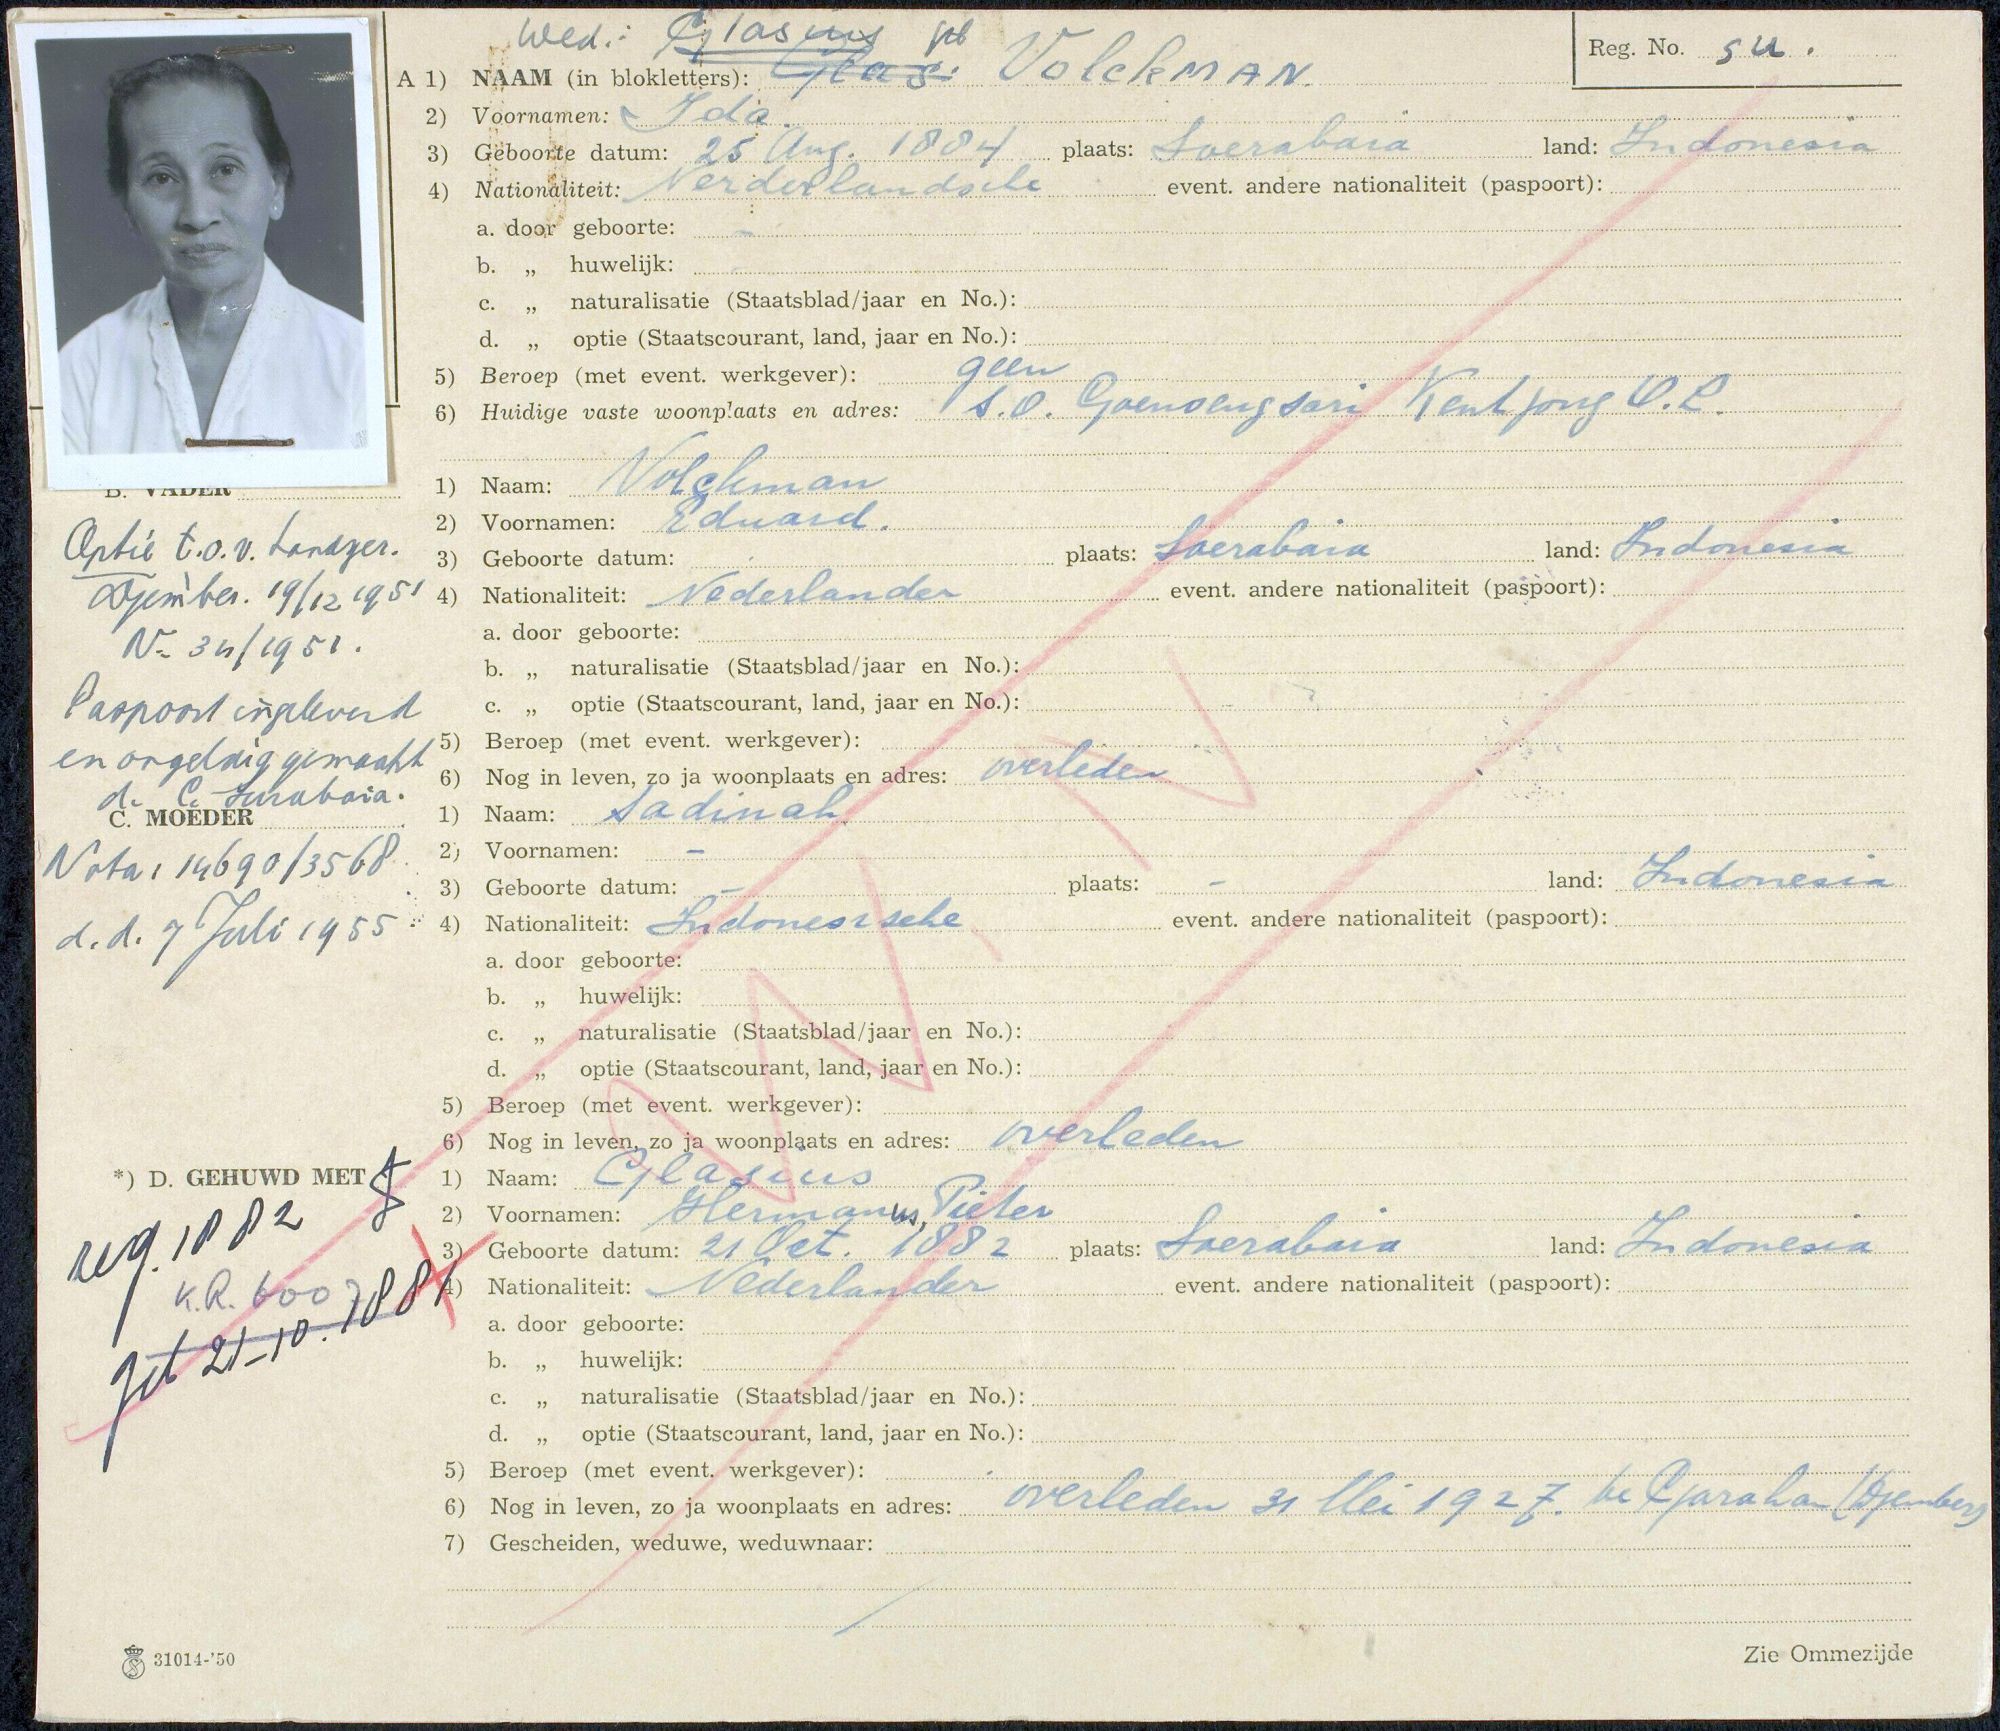 Wed.: Glasius geb
Reg. No. su.
A 1) NAAM (in blokletters): Glas: VolckMAN.
2) Voornamen: Ida.
3) Geboorte datum: 25 Aug. 1884 plaats: Soerabaia land: Indonesia
4) Nationaliteit: Nederlandsche event. andere nationaliteit (paspoort):
a. door geboorte: -
b. „ huwelijk: -
c. „ naturalisatie (Staatsblad/jaar en No.):
d. „ optie (Staatscourant, land, jaar en No.):
5) Beroep (met event. werkgever): geen
6) Huidige vaste woonplaats en adres: S.O. Goenoengsari Kentjong O.L.
B. VADER
1) Naam: Volckman
2) Voornamen: Eduard.
3) Geboorte datum: plaats: Soerabaia land: Indonesia
4) Nationaliteit: Nederlander event. andere nationaliteit (paspoort):
a. door geboorte:
b. „ naturalisatie (Staatsblad/jaar en No.):
c. „ optie (Staatscourant, land, jaar en No.):
5) Beroep (met event. werkgever):
6) Nog in leven, zo ja woonplaats en adres: overleden
Optie t.o.v. Landger.
Djember. 19/12 1951
No 34/1951.
Paspoort ingeleverd
en ongeldig gemaakt
d. C. Surabaia.
C. MOEDER
1) Naam: Sadinah
2) Voornamen: -
3) Geboorte datum: - plaats: - land: Indonesia
4) Nationaliteit: Indonesische event. andere nationaliteit (paspoort):
a. door geboorte:
b. „ huwelijk:
c. „ naturalisatie (Staatsblad/jaar en No.):
d. „ optie (Staatscourant, land, jaar en No.):
5) Beroep (met event. werkgever):
6) Nog in leven, zo ja woonplaats en adres: overleden
Nota: 14690/3568
d.d. 7 Juli 1955
*) D. GEHUWD MET
1) Naam: Glasius
2) Voornamen: Hermanus, Pieter
3) Geboorte datum: 21 Oct. 1882 plaats: Soerabaia land: Indonesia
4) Nationaliteit: Nederlander event. andere nationaliteit (paspoort):
a. door geboorte:
b. „ huwelijk:
c. „ naturalisatie (Staatsblad/jaar en No.):
d. „ optie (Staatscourant, land, jaar en No.):
5) Beroep (met event. werkgever):
6) Nog in leven, zo ja woonplaats en adres: overleden 31 Mei 1927. te Garahan (Djember)
7) Gescheiden, weduwe, weduwnaar:
reg. 1882
K.R. 6007
geb 21-10.1881
31014-'50
Zie Ommezijde